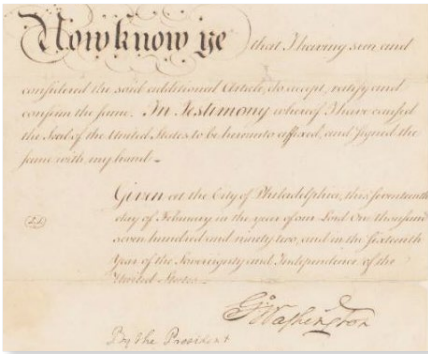 Now know ye that I having seen and
considered the said additional Article, do accept, ratify and
confirm the same. In Testimony whereof I have caused
the Seal of the United States to be hereunto affixed, and signed the
same with my hand.
Given at the City of Philadelphia, this seventeenth
day of February in the year of our Lord one thousand
seven hundred and ninety two, and in the sixteenth
Year of the Sovereignty and Independence of the
United States.
Go: Washington
By the President